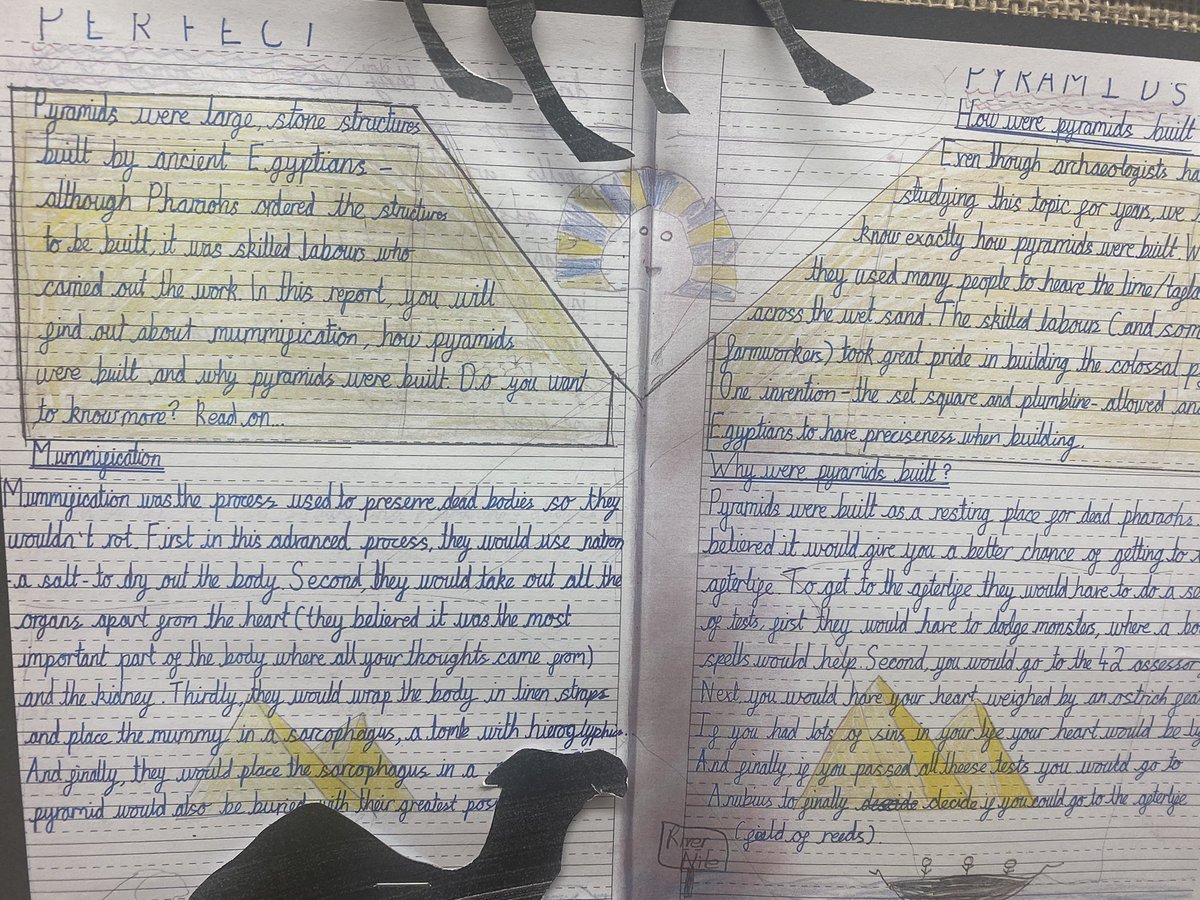 PERFECT
Pyramids were large, stone structures
built by ancient Egyptians -
although Pharaohs ordered the structures
to be built, it was skilled labours who
carried out the work. In this report, you will
find out about mummification, how pyramids
were built and why pyramids were built. Do you want
to know more? Read on...
Mummification
Mummification was the process used to preserve dead bodies so they
wouldn't rot. First in this advanced process, they would use natron
- a salt - to dry out the body. Second, they would take out all the
organs apart from the heart (they believed it was the most
important part of the body where all your thoughts came from)
and the kidney. Thirdly, they would wrap the body in linen straps
and place the mummy in a sarcophagus, a tomb with hieroglyphics.
And finally, they would place the sarcophagus in a
pyramid would also be buried with their greatest pos
PYRAMIDS
How were pyramids built
Even though archaeologists ha
studying this topic for years, we
know exactly how pyramids were built. W
they used many people to heave the lime/
across the wet sand. The skilled labours (and som
farmworkers) took great pride in building the colossal p
One invention - the set square and plumbline - allowed an
Egyptians to have preciseness when building.
Why were pyramids built?
Pyramids were built as a resting place for dead pharaohs
believed it would give you a better chance of getting to
afterlife. To get to the afterlife they would have to do a se
of tests, first they would have to dodge monsters, where a bo
spells would help. Second, you would go to the 42 assessor
Next you would have your heart weighed by an ostrich fe
If you had lots of sins in your life your heart would be
And finally, if you passed all theese tests you would go to
Anubus to finally decide if you could go to the afterlife
(feild of reeds).
River
Nile